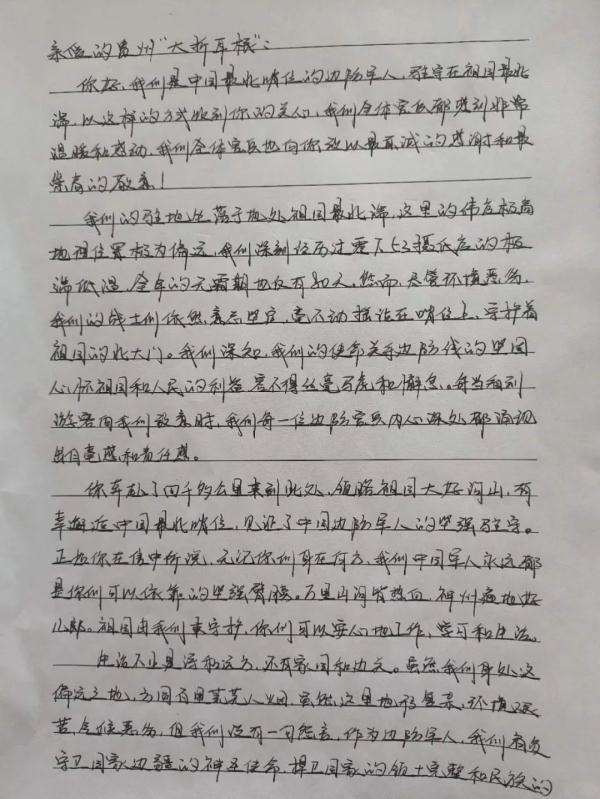 亲爱的贵州“大折耳根”：
你好，我们是中国最北哨位的边防军人，驻守在祖国最北
端，以这样的方式收到你的关心，我们全体官兵都感到非常
温暖和感动，我们全体官兵也向你致以最真诚的感谢和最
崇高的敬意！
我们的驻地坐落于地处祖国最北端，这里的纬度极高
地理位置极为偏远，我们深刻经历过零下53摄氏度的极
端低温，全年的无霜期也仅有80天。然而，尽管环境恶劣，
我们的战士们依然意志坚定，毫不动摇站在哨位上，守护着
祖国的北大门。我们深知，我们的使命关乎边防线的坚固
心怀祖国和人民的利益容不得丝毫马虎和懈怠。每当看到
游客向我们敬意时，我们每一位边防官兵内心深处都涌现
出自豪感和责任感。
你车赴了四千多公里来到此处，领略祖国大好河山，有
幸邂逅中国最北哨位，见证了中国边防军人的坚强驻守。
正如你在信中所说，无论你们身在何方，我们中国军人永远都
是你们可以依靠的坚强臂膀。万里山河皆热血，神州遍地好
儿郎。祖国由我们来守护，你们可以安心地工作，学习和生活。
生活不止是诗和远方，还有家国和边关。虽然我们身处这
偏远之地，方圆百里荒芜人烟，虽然这里地形复杂，环境艰
苦，气候恶劣，但我们没有一句怨言，作为边防军人，我们肩负
守卫国家边疆的神圣使命，捍卫国家的领土完整和民族的